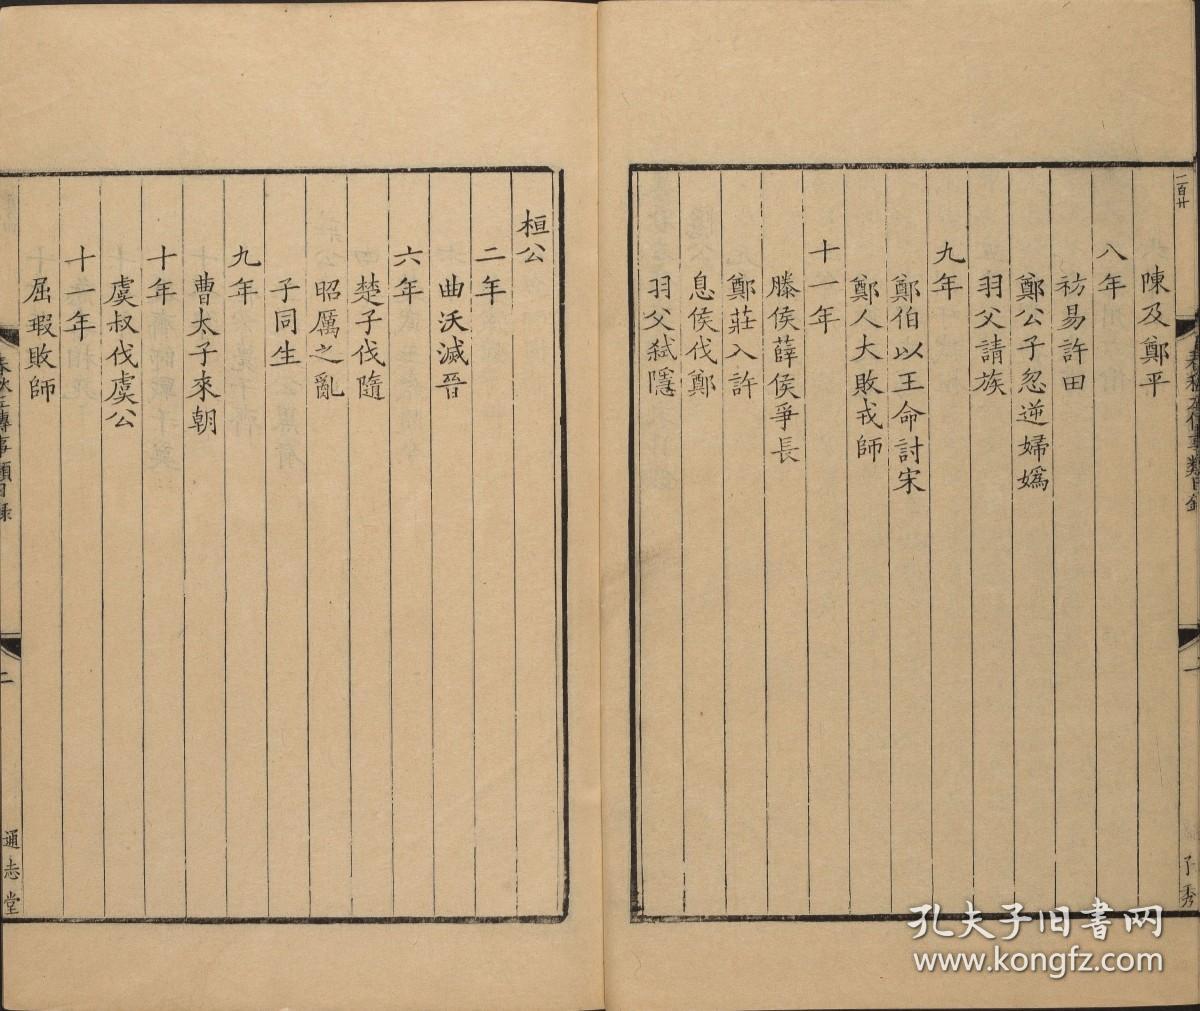 二百廿
子秀
陳及鄭平
八年
祊易許田
鄭公子忽逆婦媯
羽父請族
九年
鄭伯以王命討宋
鄭人大敗戎師
十一年
滕侯薛侯爭長
鄭莊入許
息侯伐鄭
羽父弒隱
桓公
二年
曲沃滅晉
六年
楚子伐隨
昭厲之亂
子同生
九年
曹太子來朝
十年
虞叔伐虞公
十一年
屈瑕敗師
二
通志堂
孔夫子旧书网
www.kongfz.com